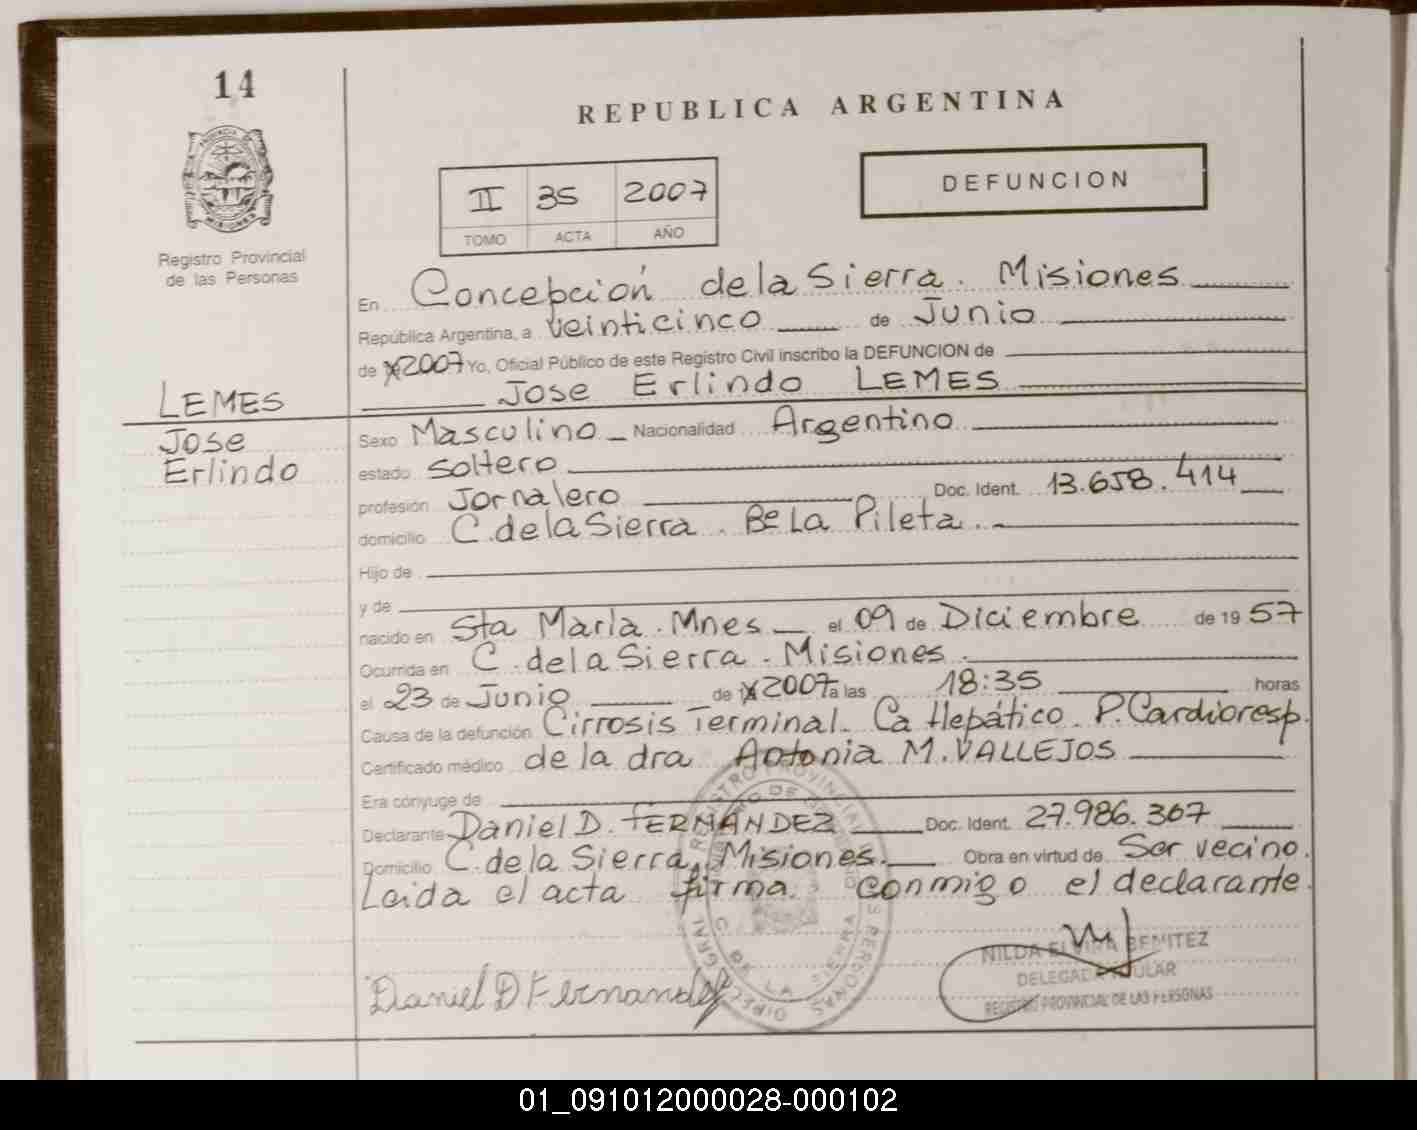 14
REPUBLICA ARGENTINA
II 35 2007
TOMO ACTA AÑO
DEFUNCION
Registro Provincial
de las Personas
En Concepción de la Sierra. Misiones
República Argentina, a veinticinco de Junio
de 2007 Yo, Oficial Público de este Registro Civil inscribo la DEFUNCION de
Jose Erlindo LEMES
LEMES
Jose
Erlindo
Sexo Masculino Nacionalidad Argentino
estado Soltero
profesión Jornalero Doc. Ident. 13.658.414
domicilio C. de la Sierra. Bº La Pileta.
Hijo de
y de
nacido en Sta Maria. Mnes el 09 de Diciembre de 1957
Ocurrida en C. de la Sierra. Misiones.
el 23 de Junio de 2007 a las 18:35 horas
Causa de la defunción Cirrosis Terminal. Ca Hepático. P. Cardioresp.
Certificado médico de la dra Antonia M. VALLEJOS
Era cónyuge de
Declarante Daniel D. FERNANDEZ Doc. Ident. 27.986.367
Domicilio C. de la Sierra, Misiones. Obra en virtud de Ser vecino.
Leida el acta firma conmigo el declarante.
Daniel D Fernandez
NILDA ELVIRA BENITEZ
DELEGADA TITULAR
REGISTRO PROVINCIAL DE LAS PERSONAS
01_091012000028-000102